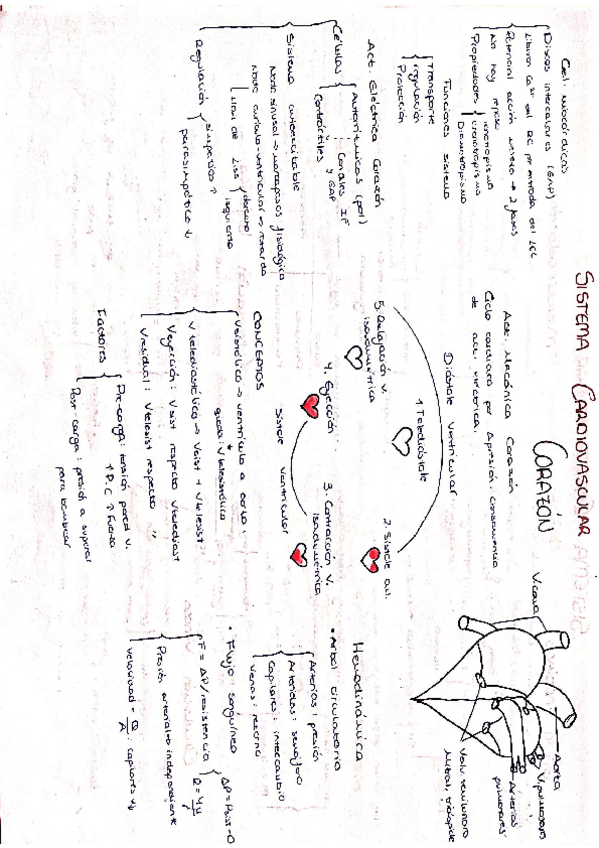 SISTEMA CARDIOVASCULAR
CORAZÓN
Cel. miocárdicas
Discos intercalares (GAP)
Liberan Ca²⁺ del RE por entrada del LEC
Potencial acción → 2 fases
No hay reposo
Propiedades
Inotropismo
Cronotropismo
Dromotropismo
Funciones sistema
Transporte
regulación
Protección
Act. Eléctrica Corazón
Células
Autorrítmicas (pot)
Canales IF
y GAP
Contráctiles
Sistema autoexcitable
Nodo sinusal → marcapasos fisiológico
Nodo aurículo-ventricular → retarda
Haz de Hiss
derecho
izquierdo
Regulación
simpático ↑
parasimpático ↓
Act. Mecánica Corazón
Ciclo cardiaco por ΔPresión, consecuencia
de act. eléctrica.
Diástole Ventricular
1. Telediástole
2. Sístole au.
3. Contracción V.
isovolumétrica
4. Eyección
5. Relajación V.
isovolumétrica
Sístole ventricular
CONCEPTOS
queda: Vtelesistólico
V telediastólico → Vsist + Vtelesist
Veyección: Vsist respecto Vtelediast
Vresidual: Vtelesist respecto "
Factores
Pre-carga: tensión pared V.
↑P.C ↑Fuerza
Post-carga: presión a superar
para bombear
V.cava
Aorta
V.pulmonares
Arterias
pulmonares
Mitral, tricúspide
Hemodinámica
• Árbol circulatorio
Arterias: presión
Arteriolas: semáforo
Capilares: intercambio
Venas: retorno
• Flujo sanguíneo
F = ΔP/resistencia
Presión arterial → independiente
Velocidad = Q/A capilares ↓